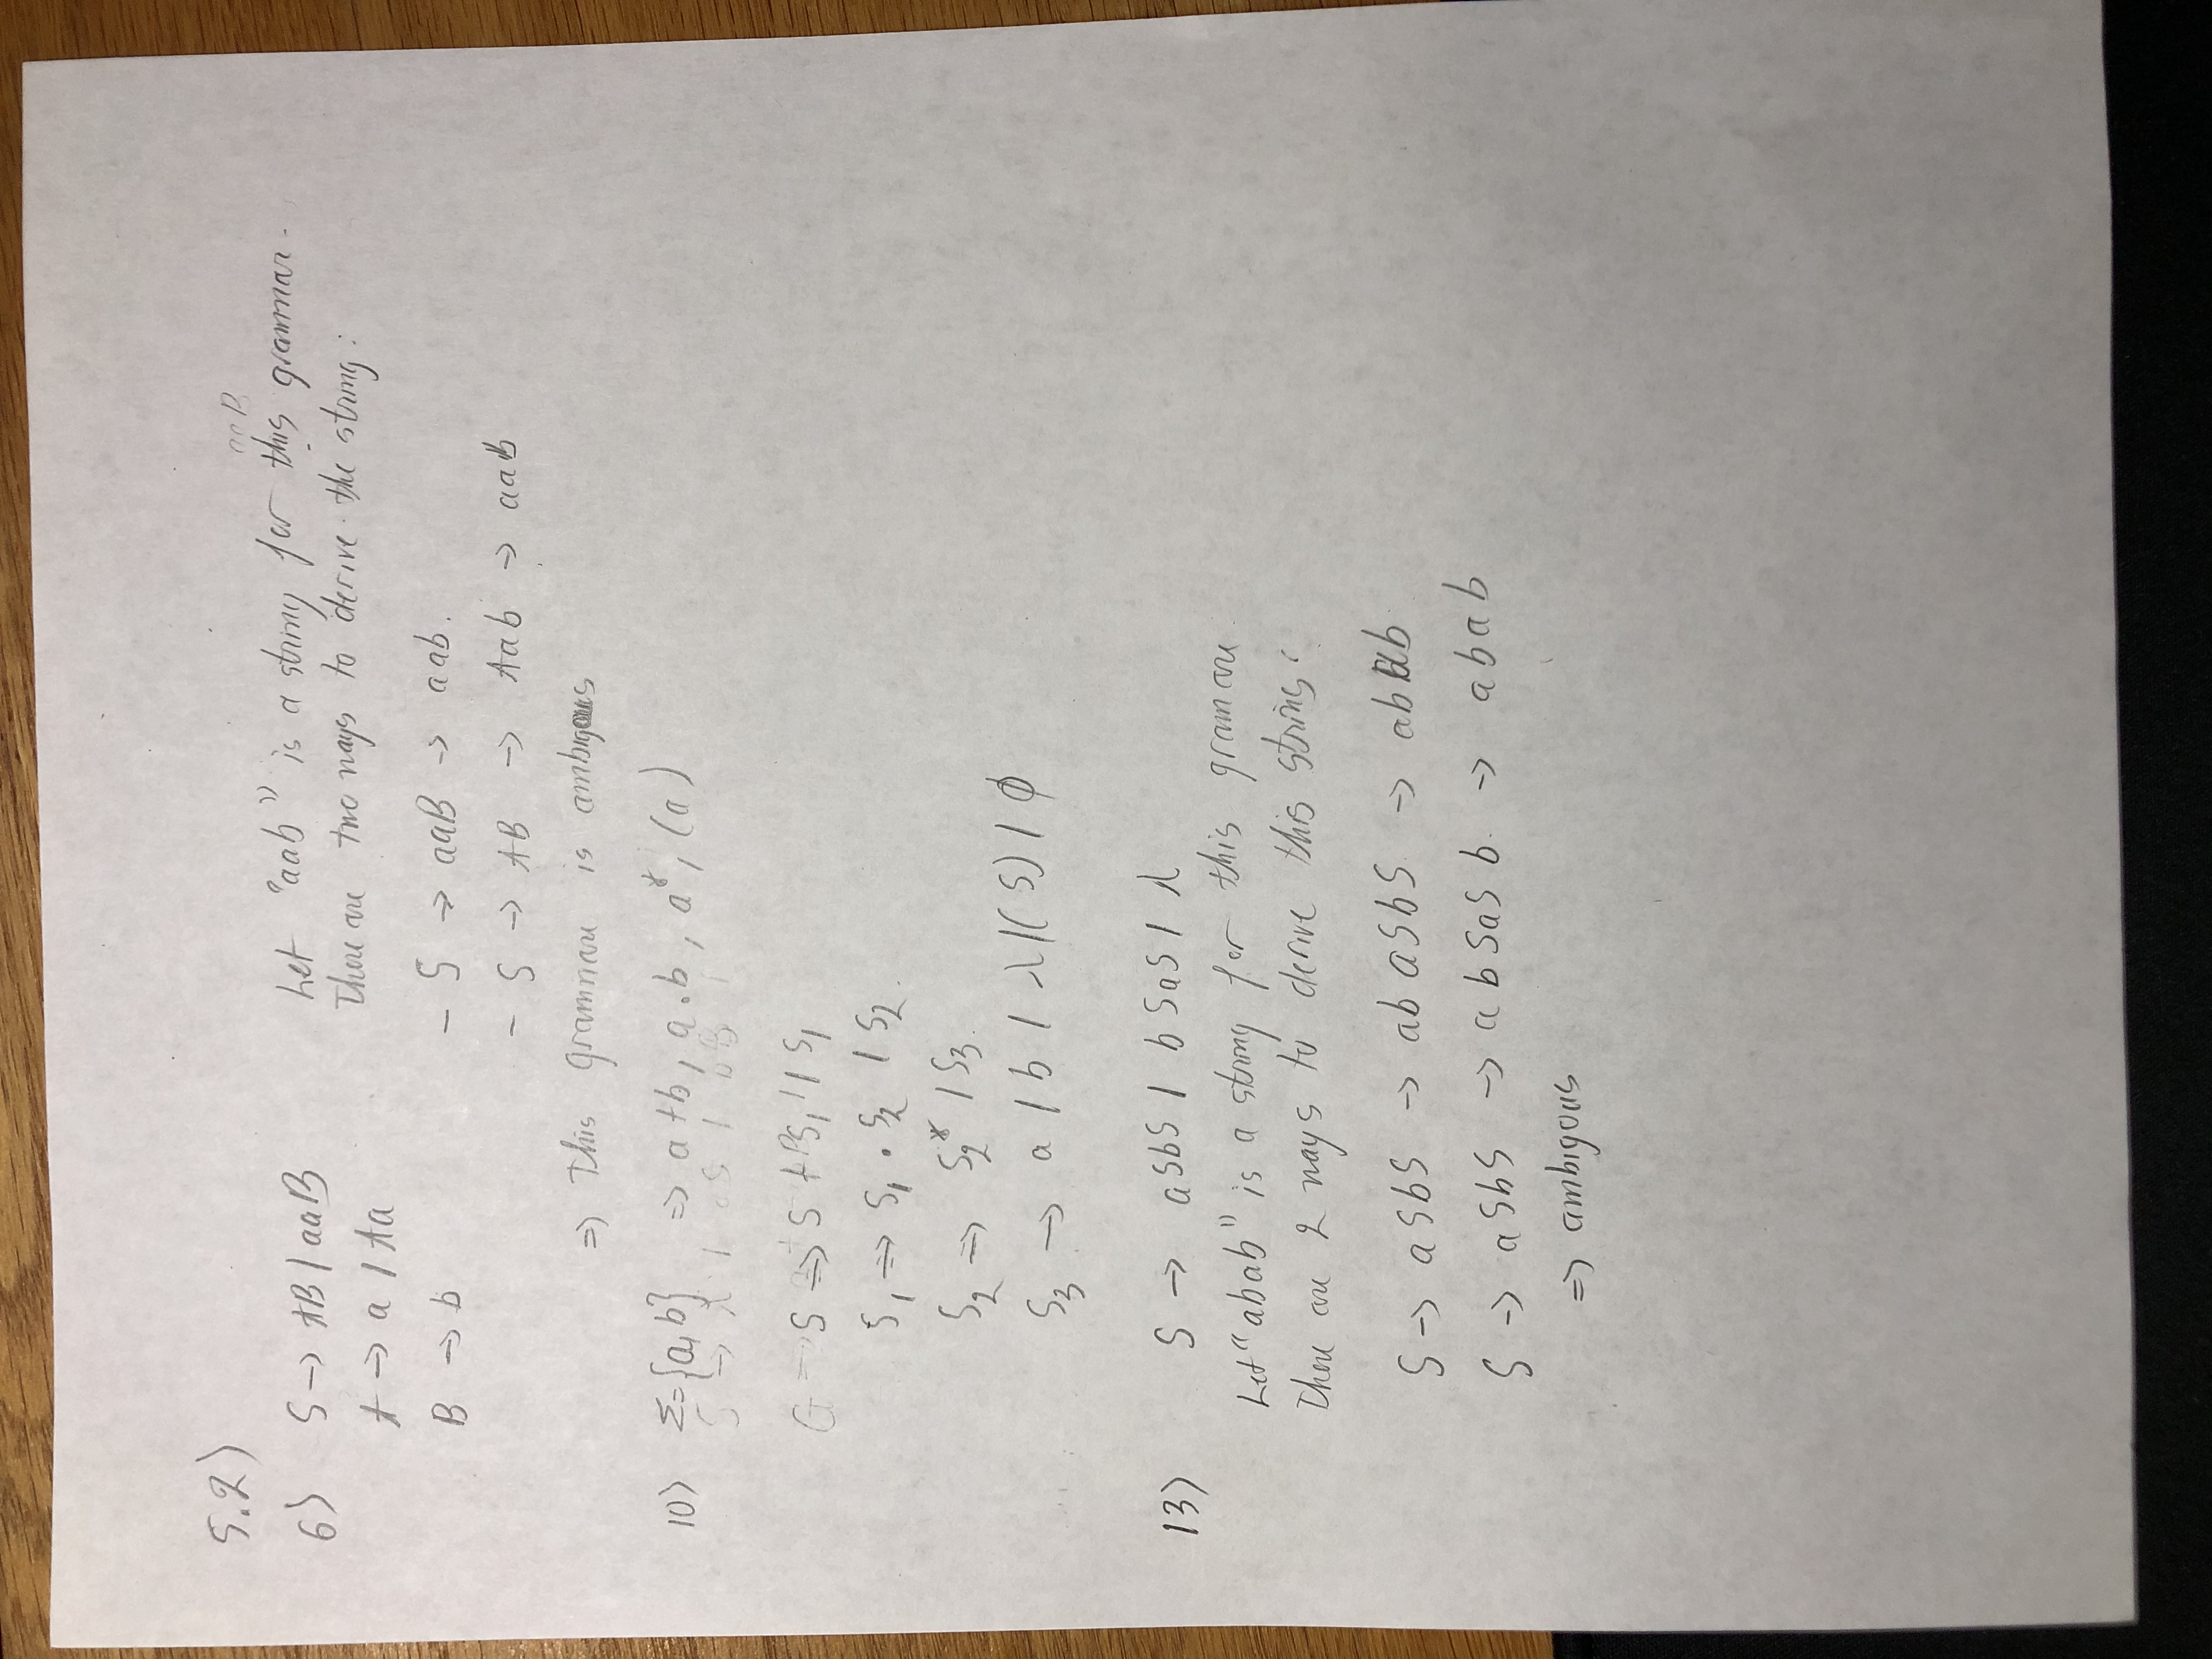 5.2)
6) S → AB / aaB
A → a / Aa
B → b
aaB
Let "aab" is a string for this grammar.
There are two ways to derive the string:
- S → aaB → aab.
- S → AB → Aab → aab
⇒ This grammare is ambigous
10) Σ={a,b} ⇒ a+b, a.b, a*, (a)
S → λ / aS / bB /
G S ⇒ S + S₁ / S₁
S₁ ⇒ S₁ . S₂ / S₂.
S₂ ⇒ S₂* / S₃.
S₃ → a / b / λ /(S) / ϕ
13) S → aSbS / bSaS / λ
Let "abab" is a string for this gramare.
There are 2 ways to derive this string:
S → aSbS → abaSbS. → abab
S → aSbS → abSaSb. → abab
⇒ ambigous